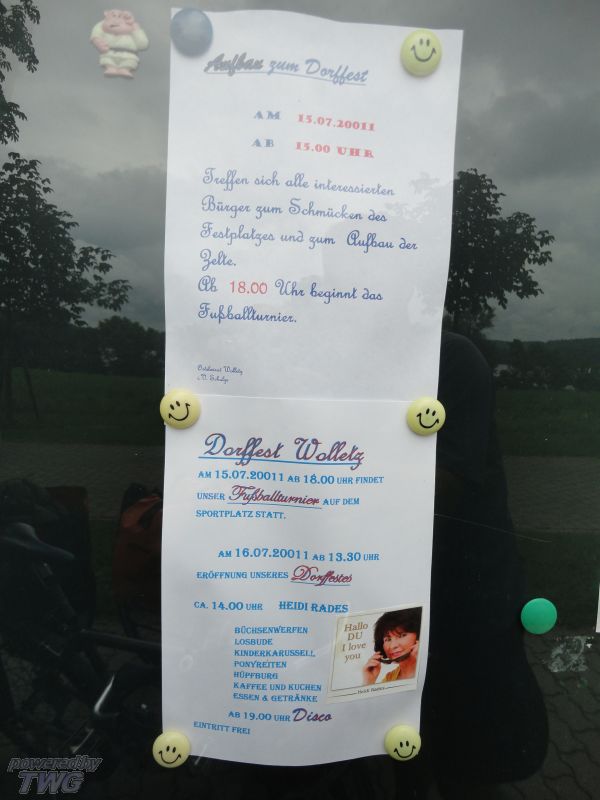 Aufbau zum Dorffest
AM 15.07.20011
AB 15.00 UHR
Treffen sich alle interessierten
Bürger zum Schmücken des
Festplatzes und zum Aufbau der
Zelte.
Ab 18.00 Uhr beginnt das
Fußballturnier.
Ortsbeirat Wolletz
i.V. Schulze
Dorffest Wolletz
AM 15.07.20011 AB 18.00 UHR FINDET
UNSER Fußballturnier AUF DEM
SPORTPLATZ STATT.
AM 16.07.20011 AB 13.30 UHR
ERÖFFNUNG UNSERES Dorffestes
CA. 14.00 UHR HEIDI RADES
BÜCHSENWERFEN
LOSBUDE
KINDERKARUSSELL
PONYREITEN
HÜPFBURG
KAFFEE UND KUCHEN
ESSEN & GETRÄNKE
Hallo
DU
I love
you
Heidi Rades
AB 19.00 UHR Disco
EINTRITT FREI
powered by
TWG